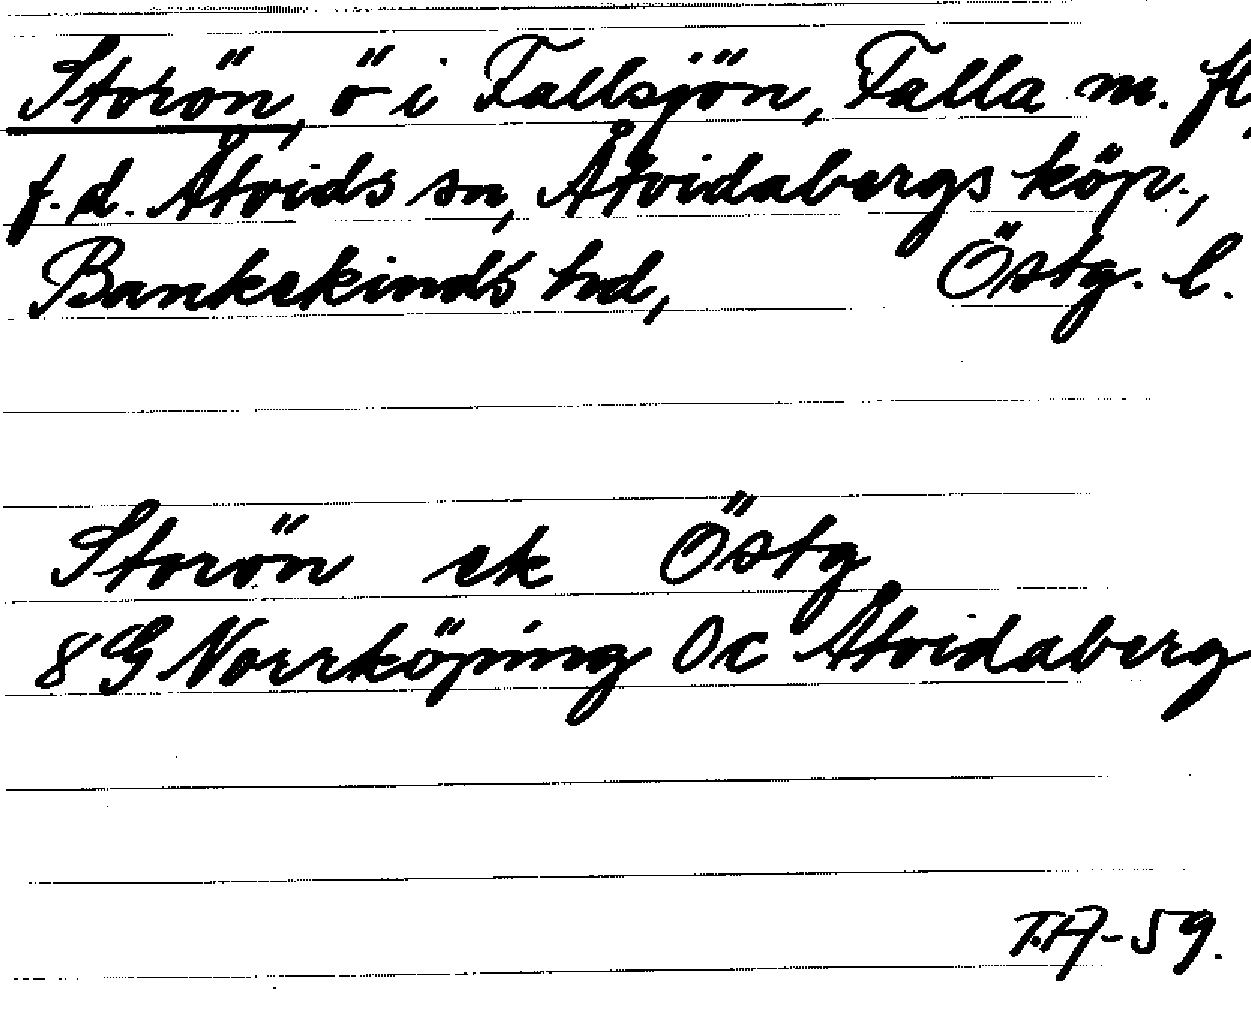 Storön, ö i Fallsjön, Falla m. fl,
f.d. Åtvids sn, Åtvidabergs köp.,
Bankekinds hd, Östg. l.
Storön ek Östg
8G Norrköping 0c Åtvidaberg
T.A-59.